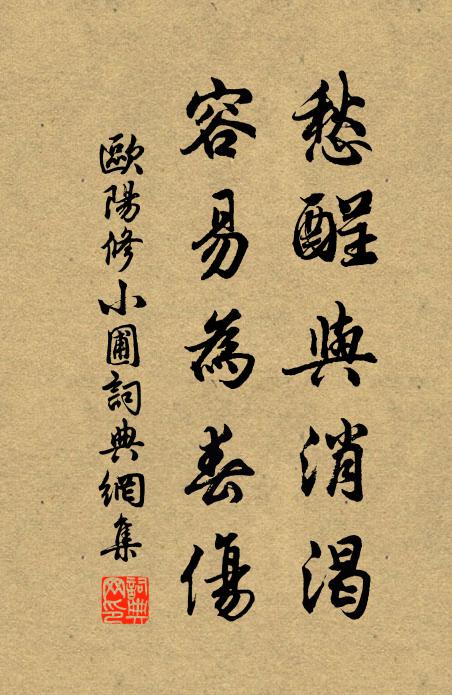 愁酲與消渴
容易為春傷
歐陽修小圃詞典網集
詞典
网印